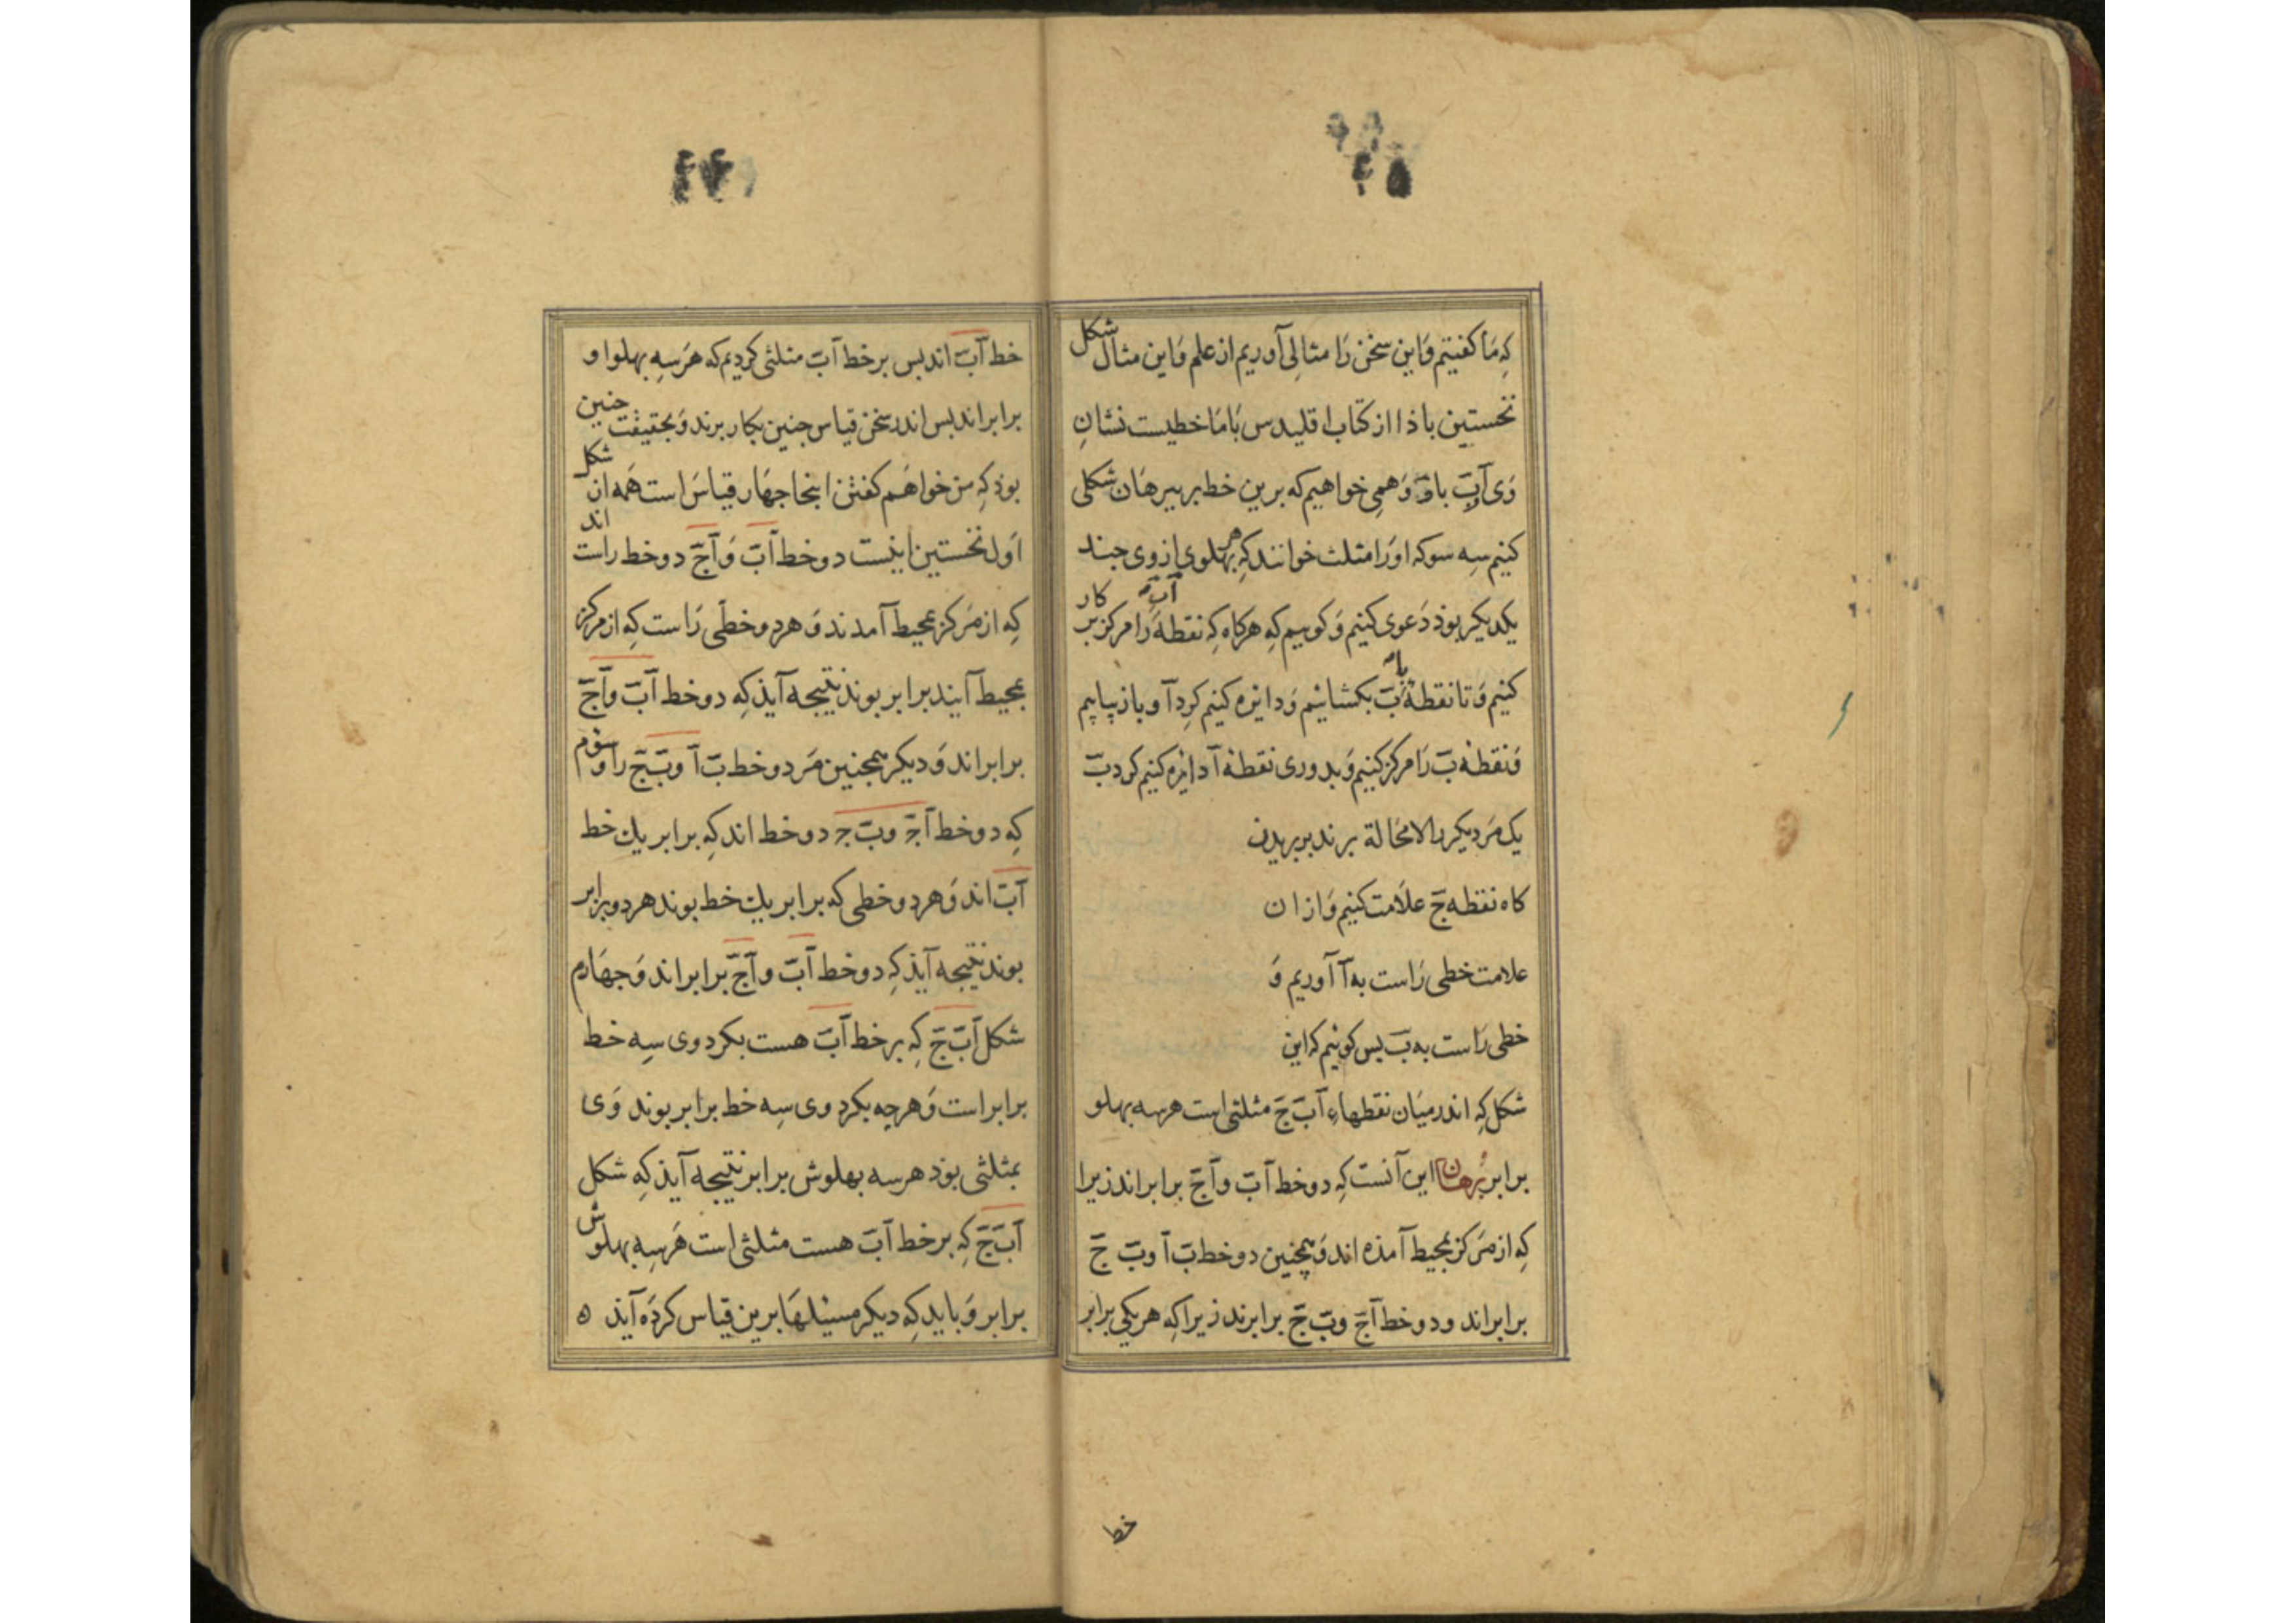 که ما کفتیم و این سخن را مثالی آوریم از علم و این مثال شکل
نخستین باذا از کتاب اقلیدس با ما خطیست نشان
وی آب و همی خواهیم که برین خط ببرهان شکلی
کنیم سه سو که او را مثلث خوانند که هر بهلوی از وی جند
یکدیکر بوذ دعوی کنیم و کوییم که هرکاه که نقطه آ را مرکز بر کار
کنیم و تا نقطه ب بکشاییم و دایره کنیم کرد آ و باز بیاییم
و نقطه ب را مرکز کنیم و بدوری نقطه آ دایره کنیم کرد ب
یک مر دیکر را لا محالة برند بر بریدن
کاه نقطه ج علامت کنیم و ازان
علامت خطی راست به آ آوریم و
خطی راست به ب بس کوییم که این
شکل که اندر میان نقطهاء آ ب ج مثلثی است هر سه بهلو
برابر برهان این آنست که دو خط آب و آج برابراند زیرا
که از مرکز بمحیط آمذه اند و همچنین دو خط ب آ و ب ج
برابراند و دو خط آج و ب ج برابرند زیرا که هر یکی برابر
خط
خط آب اند بس بر خط آب مثلثی کردیم که هر سه بهلو او
برابراند بس اندر سخن قیاس جنین بکار برند و بحقیقت جنین
بوذ که من خواهم کفتن اینجا جهار قیاس است همه ان شکل
اول نخستین اینست دو خط آب و آج دو خط راست اند
که از مرکز بمحیط آمدند و هر دو خطی راست که از مرکز
بمحیط آیند برابر بوند نتیجه آیذ که دو خط آب و آج
برابراند و دیکر همجنین مر دو خط ب آ و ب ج را و سوم
که دو خط آج و ب ج دو خط اند که برابر یك خط
آب اند و هر دو خطی که برابر یك خط بوند هر دو برابر
بوند نتیجه آیذ که دو خط آب و آج برابراند و جهارم
شکل آ ب ج که بر خط آب هست بکرد وی سه خط
برابر است و هر چه بکرد وی سه خط برابر بوند وی
مثلثی بوذ هر سه بهلوش برابر نتیجه آیذ که شکل
آ ب ج که بر خط آب هست مثلثی است هر سه بهلوش
برابر و باید که دیکر مسیلها برین قیاس کرده آیذ ه